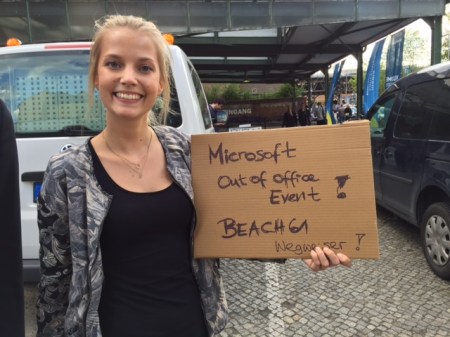 EINGANG
Microsoft
Out of office
Event !
BEACH 61
Wegweiser !